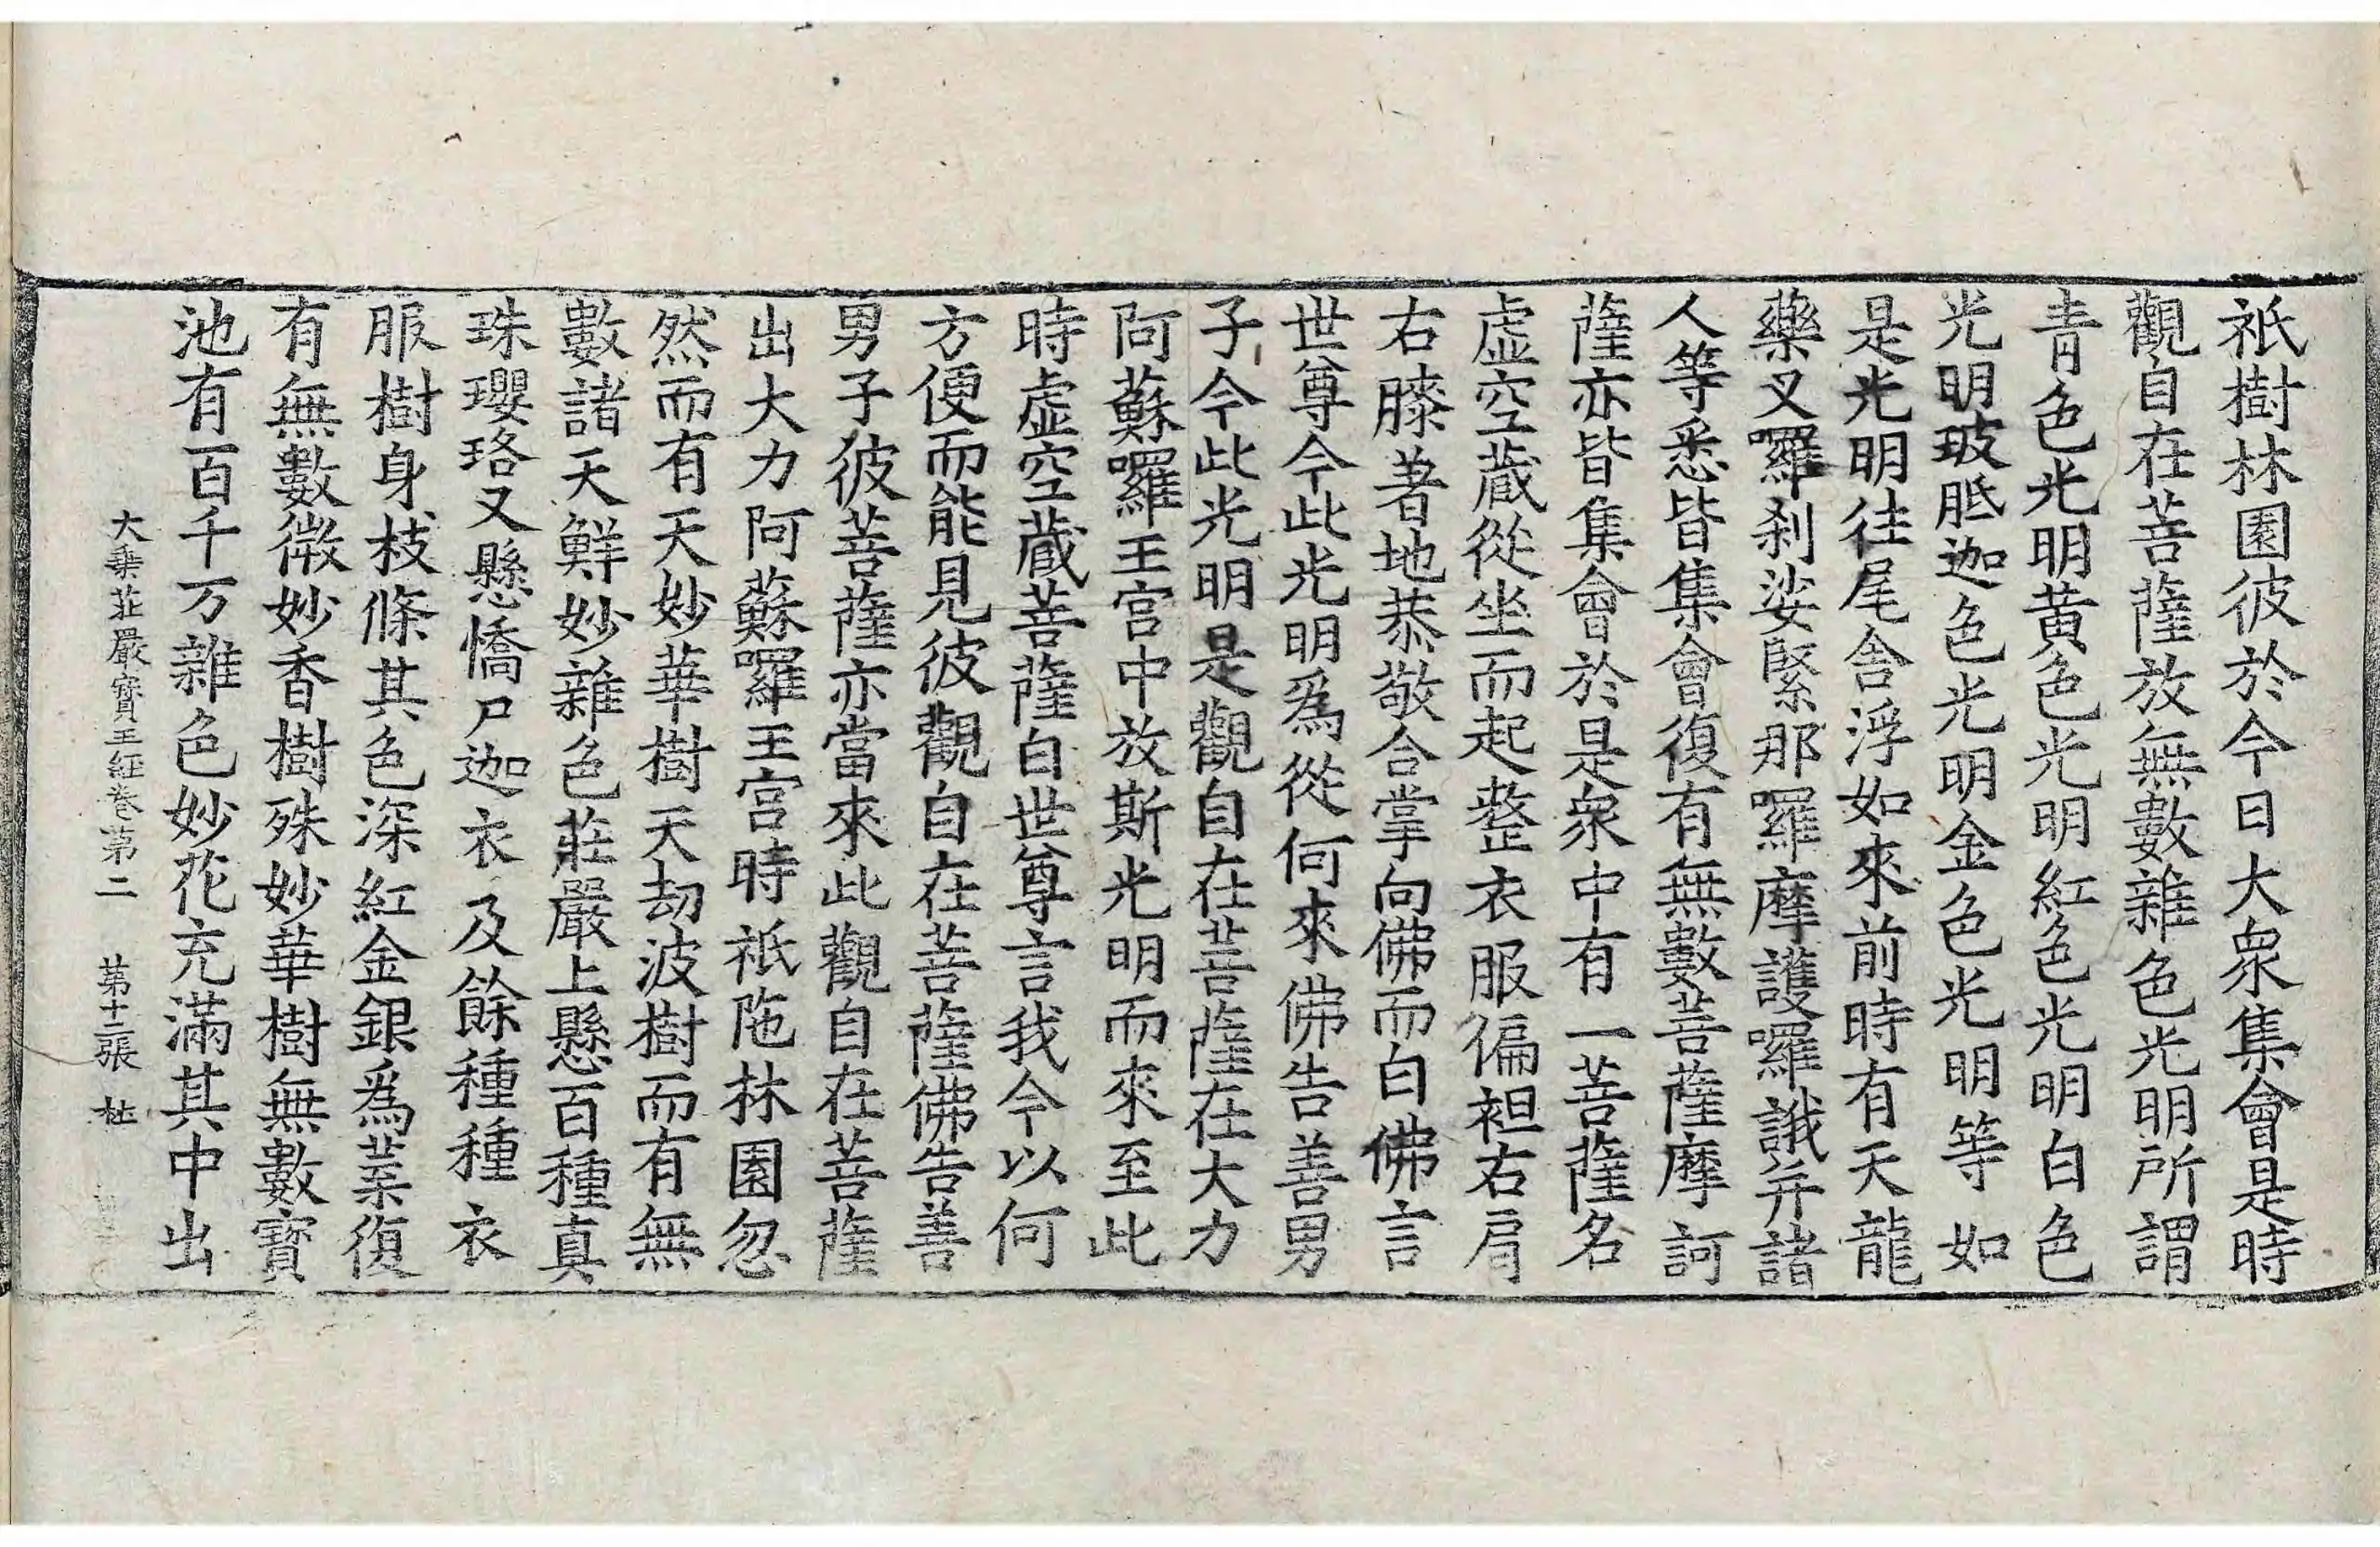 祇樹林園彼於今日大衆集會是時
觀自在菩薩放無數雜色光明所謂
青色光明黃色光明紅色光明白色
光明玻胝迦色光明金色光明等如
是光明往尾舍浮如來前時有天龍
藥叉囉刹娑緊那囉摩護囉誐并諸
人等悉皆集會復有無數菩薩摩訶
薩亦皆集會於是衆中有一菩薩名
虛空藏從坐而起整衣服偏袒右肩
右膝著地恭敬合掌向佛而白佛言
世尊今此光明爲從何來佛告善男
子今此光明是觀自在菩薩在大力
阿蘇囉王宮中放斯光明而來至此
時虛空藏菩薩白世尊言我今以何
方便而能見彼觀自在菩薩佛告善
男子彼菩薩亦當來此觀自在菩薩
出大力阿蘇囉王宮時祇陁林園忽
然而有天妙華樹天劫波樹而有無
數諸天鮮妙雜色莊嚴上懸百種真
珠瓔珞又懸憍尸迦衣及餘種種衣
服樹身枝條其色深紅金銀爲葉復
有無數微妙香樹殊妙華樹無數寶
池有百千万雜色妙花充滿其中出
大乗莊嚴寳王經卷第二 第十二張 杜